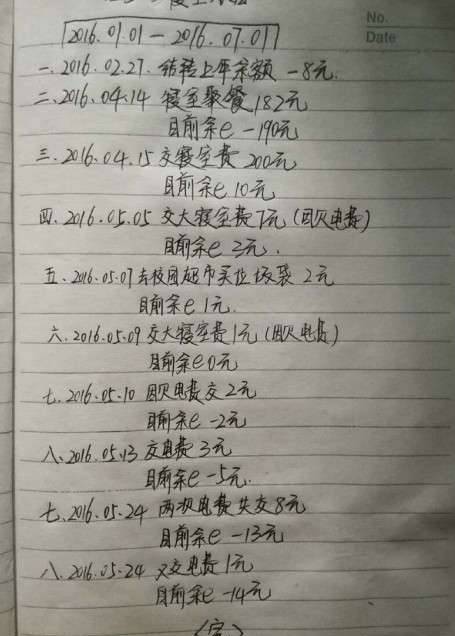 No.
Date
2016.01.01 — 2016.07.01
一、2016.02.27. 结转上年余额 -8元.
二、2016.04.14 寝室聚餐 182元
目前余e -190元
三、2016.04.15 交寝室费 200元
目前余e 10元
四、2016.05.05 交大寝室费7元(因欠电费)
目前余e 3元.
五、2016.05.07 去校园超市买垃圾袋 2元
目前余e 1元.
六、2016.05.09 交大寝室费1元(因欠电费)
目前余e 0元
七、2016.05.10 因欠电费交2元
目前余e -2元
八、2016.05.13 交电费3元
目前余e -5元.
七、2016.05.24 两次电费共交8元
目前余e -13元
八、2016.05.24 又交电费1元
目前余e -14元
(完)